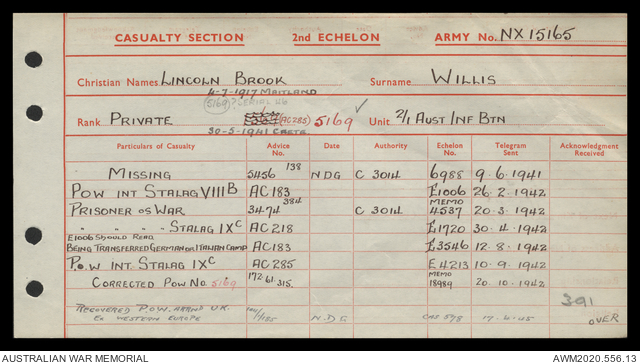 CASUALTY SECTION 2nd ECHELON ARMY No. NX 15165
Christian Names LINCOLN BROOK Surname WILLIS
4-7-1917 MAITLAND
5169
Rank PRIVATE (AC285) 5169 ✓ Unit 2/1 AUST INF BTN
30-5-1941 CRETE
Particulars of Casualty Advice No. Date Authority Echelon No. Telegram Sent Acknowledgment Received
MISSING 5456 138 NDG C 3014 6988 9.6.1941
POW INT STALAG VIII B AC 183 E1006 26.2.1942
PRISONER OF WAR 3474 384 C 3014 MEMO 4537 20.3.1942
" " " STALAG IXC AC 218 E1720 30.4.1942
E1006 SHOULD READ
BEING TRANSFERRED GERMAN OR ITALIAN CAMP AC 183 E3546 12.8.1942
P.O.W INT. STALAG IXC AC 285 E4213 10.9.1942
CORRECTED POW NO. 5169 172.61.315. MEMO 18989 20.10.1942
RECOVERED P.O.W. ARRIVED U.K. NDG CAS 17.4.45
EX WESTERN EUROPE
391
OVER
AUSTRALIAN WAR MEMORIAL AWM2020.556.13